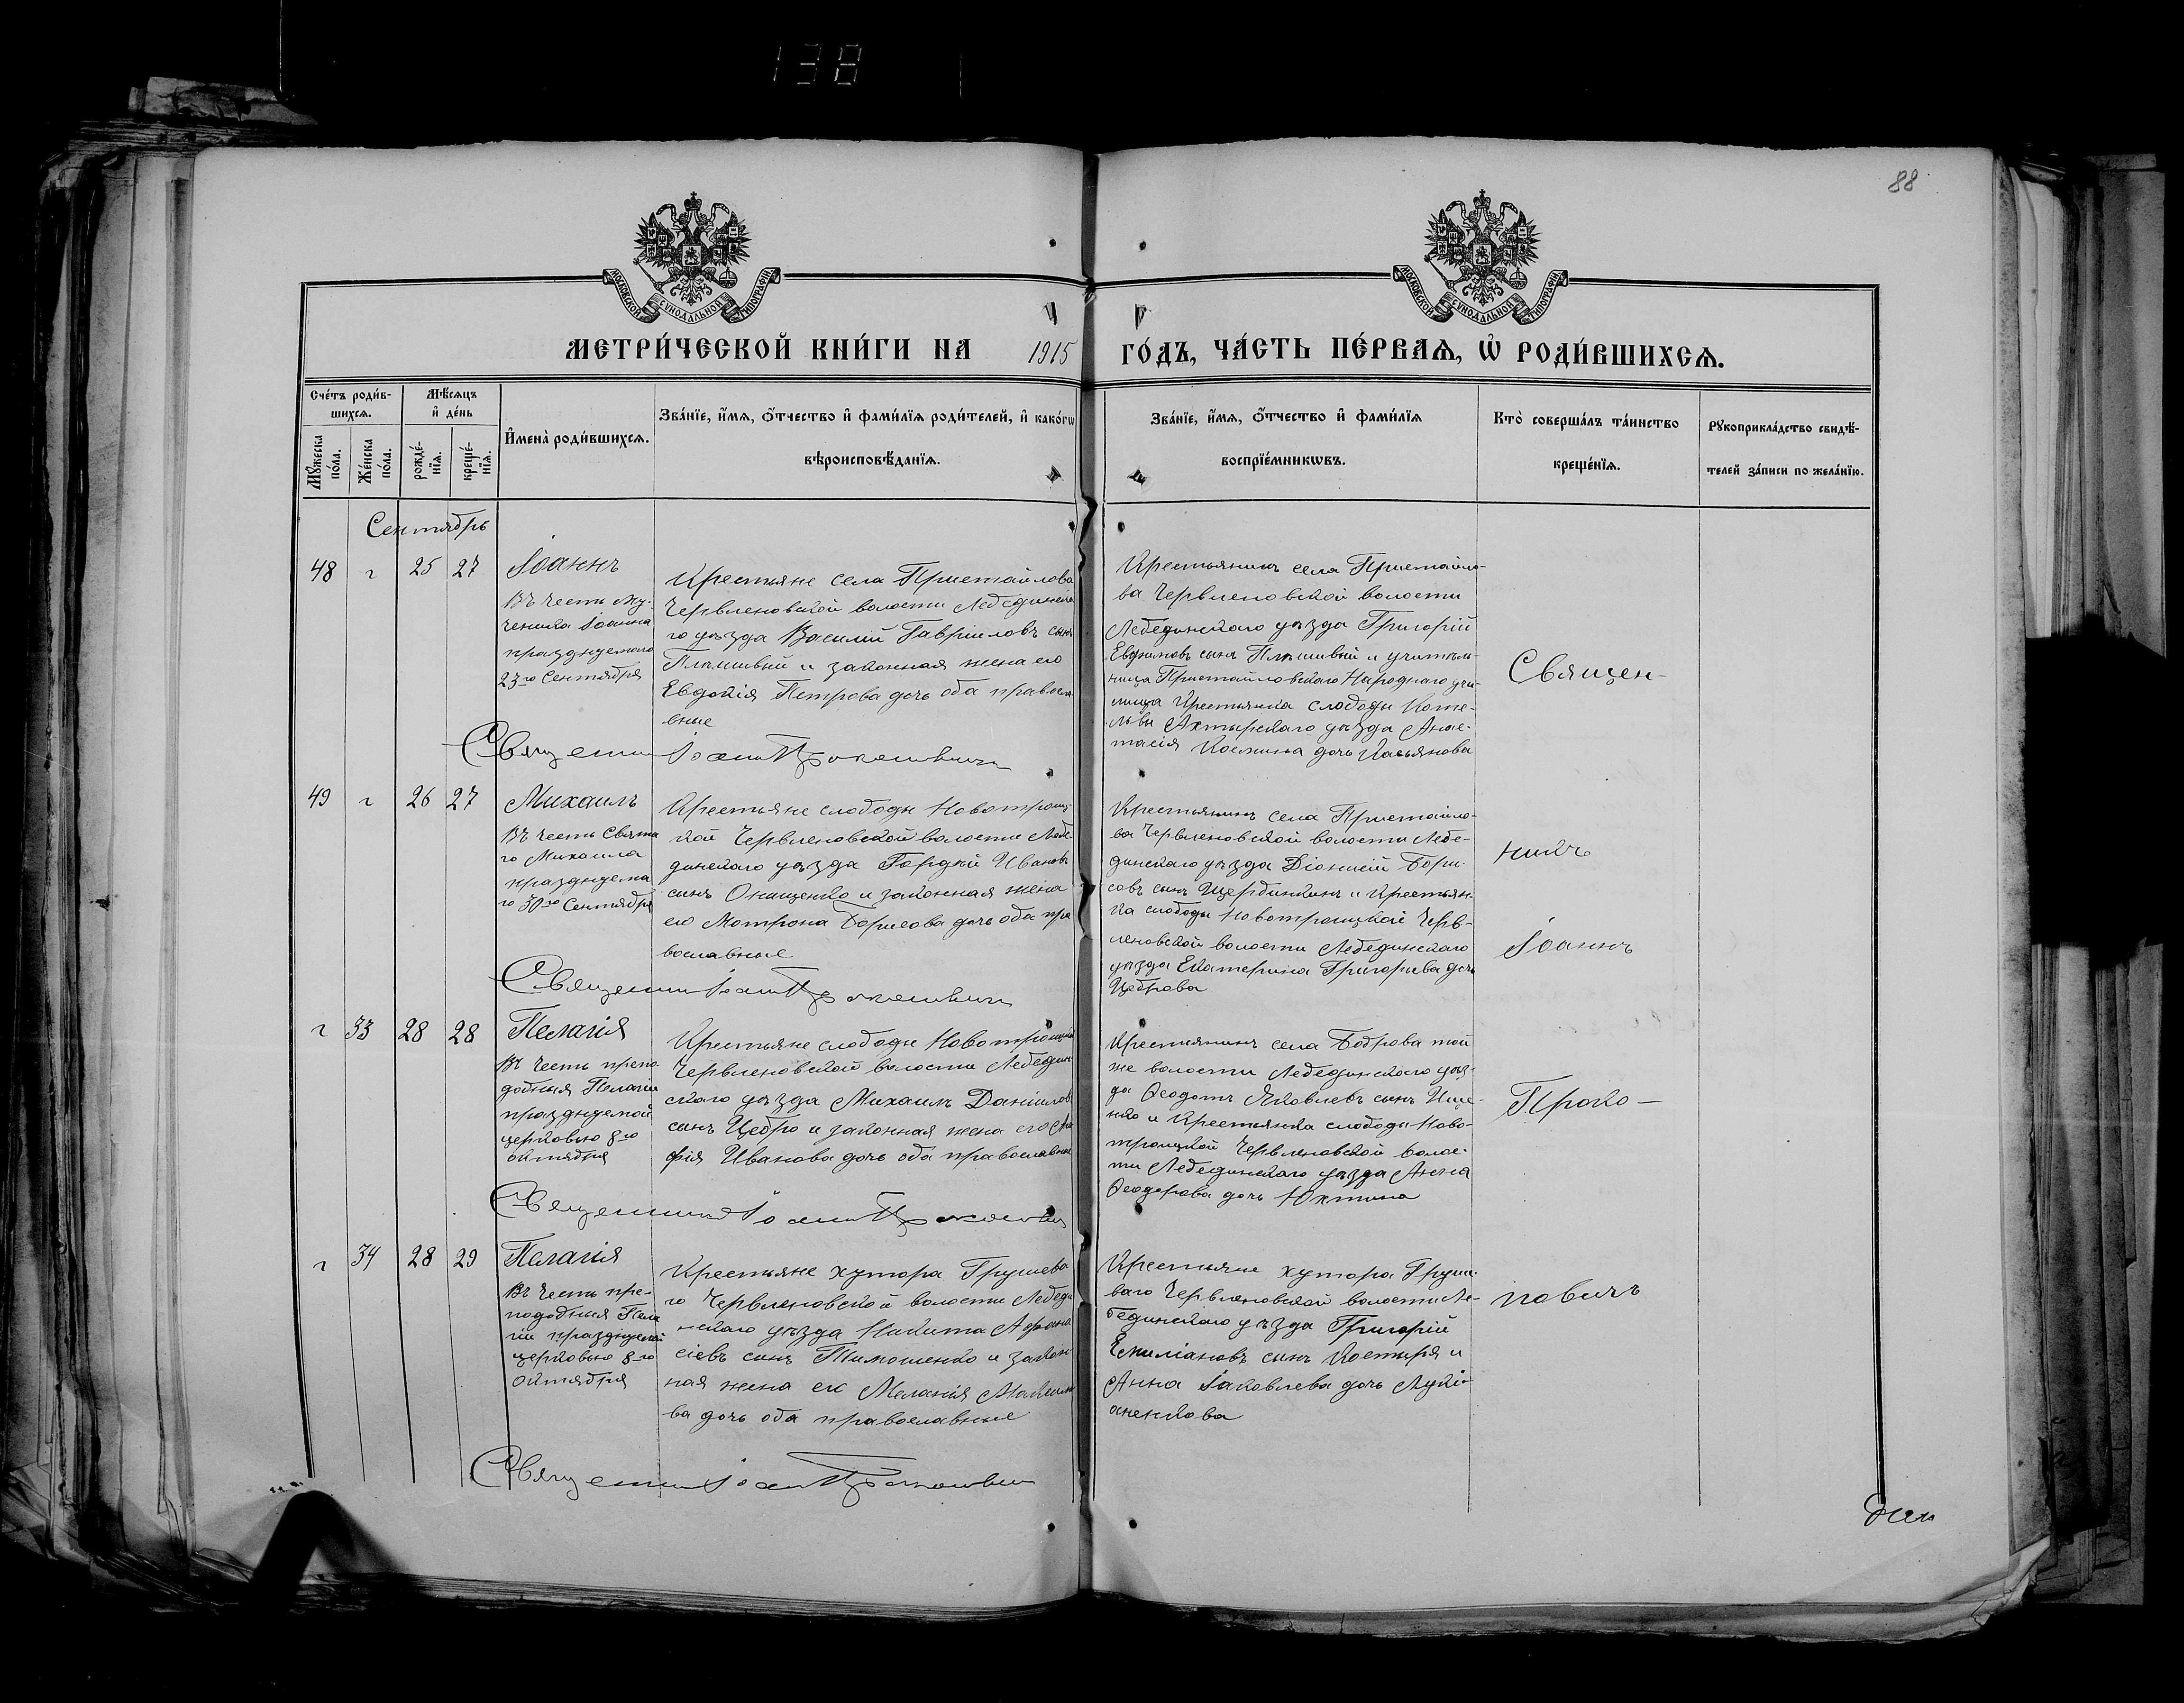 138
88
МОСКОВСКОЙ СѴНОДАЛЬНОЙ ТИПОГРАФІИ
МОСКОВСКОЙ СѴНОДАЛЬНОЙ ТИПОГРАФІИ
МЕТРИ́ЧЕСКОЙ КНИ́ГИ НА 1915 ГО́ДЪ, ЧА́СТЬ ПЕ́РВАѦ, Ѡ҆ РОДИ́ВШИХСѦ.
Сче́тъ роди́в-
шихсѧ.
Мѣ́сѧцъ
и҆ де́нь
Мꙋ́жеска
по́ла.
Же́нска
по́ла.
рожде́-
нїѧ.
креще́-
нїѧ.
И҆мена̀ роди́вшихсѧ.
Зва́нїе, и҆́мѧ, ѻ҆́тчество и҆ фами́лїѧ роди́телей, и҆ како́гѡ
вѣроисповѣ́данїѧ.
Зва́нїе, и҆́мѧ, ѻ҆́тчество и҆ фами́лїѧ
воспрїе́мникѡвъ.
Кто̀ соверша́лъ та́инство
креще́нїѧ.
Рꙋкоприкла́дство свидѣ́-
телей за́писи по жела́нїю.
Сентябрь
48 г 25 27
Іоаннъ
Въ честь му-
ченика Іоанна
празднуемаго
23го Сентября
Крестьяне села Пристайлова
Червленовской волости Лебединска
го уѣзда Василій Гавріиловъ сынъ
Плѣшивый и законная жена его
Евдокія Петрова дочь оба правосла-
вные
Крестьянинъ села Пристайло-
ва Червленовской волости
Лебединскаго уѣзда Григорій
Евфимовъ сынъ Плѣшивый и учитель-
ница Пристайловскаго Народнаго учи-
лища Крестьянка слободы Коте-
львы Ахтырскаго уѣзда Анас-
тасія Космина дочь Касьянова
Священ-
49 г 26 27
Михаилъ
Въ честь Свята
го Михаила
празднуема
го 30го Сентября
Крестьяне слободы Новотроиц-
кой Червленовской волости Лебе-
динскаго уѣзда Гордій Ивановъ
сынъ Онищенко и законная жена
его Мотрона Борисова дочь оба пра
вославные
Крестьянинъ села Пристайло-
ва Червленовской волости Лебе-
динскаго уѣзда Діонисій Бори-
совъ сынъ Щербинкинъ и крестьян-
ка слободы Новотроицкой Черв-
леновской волости Лебединскаго
уѣзда Екатерина Григорьева дочь
Цеброва
никъ
Іоаннъ
г 33 28 28
Пелагія
Въ честь препо
добныя Пелагіи
празднуемой
церковью 8го
октября
Крестьяне слободы Новотроицкой
Червленовской волости Лебедин
скаго уѣзда Михаилъ Даніиловъ
сынъ Цебро и законная жена его
фія Иванова дочь оба православные
Крестьянинъ села Боброва той
же волости Лебединскаго уѣз-
да Ѳеодотъ Яковлевъ сынъ Ище-
нко и крестьянка слободы Ново-
троицкой Червленовской волос-
ти Лебединскаго уѣзда Анна
Ѳеодорова дочь Юхтина
Проко-
г 34 28 29
Пелагія
Въ честь пре-
подобныя Пела
гіи празднуемой
церковью 8го
октября
Крестьяне хутора Грушева
го Червленовской волости Лебеди
нскаго уѣзда Никита Афана
сіевъ сынъ Тимошенко и закон-
ная жена его Меланія Максимо
ва дочь оба православные
Крестьяне хутора Груше-
ваго Червленовской волости Ле-
бединскаго уѣзда Григорій
Емиліановъ сынъ Костыря и
Анна Іаковлева дочь Лукі-
аненкова
повичъ